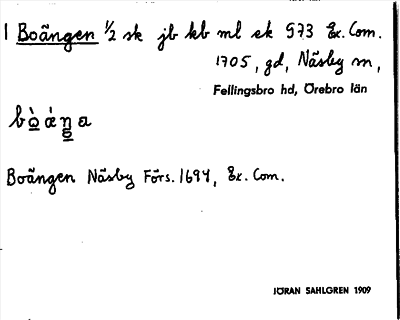 1 Boängen ½ sk jb kb ml ek 973 Ex. Com.
1705, gd, Näsby sn,
Fellingsbro hd, Örebro län
Boängen Näsby Förs. 1694, Ex. Com.
JÖRAN SAHLGREN 1909